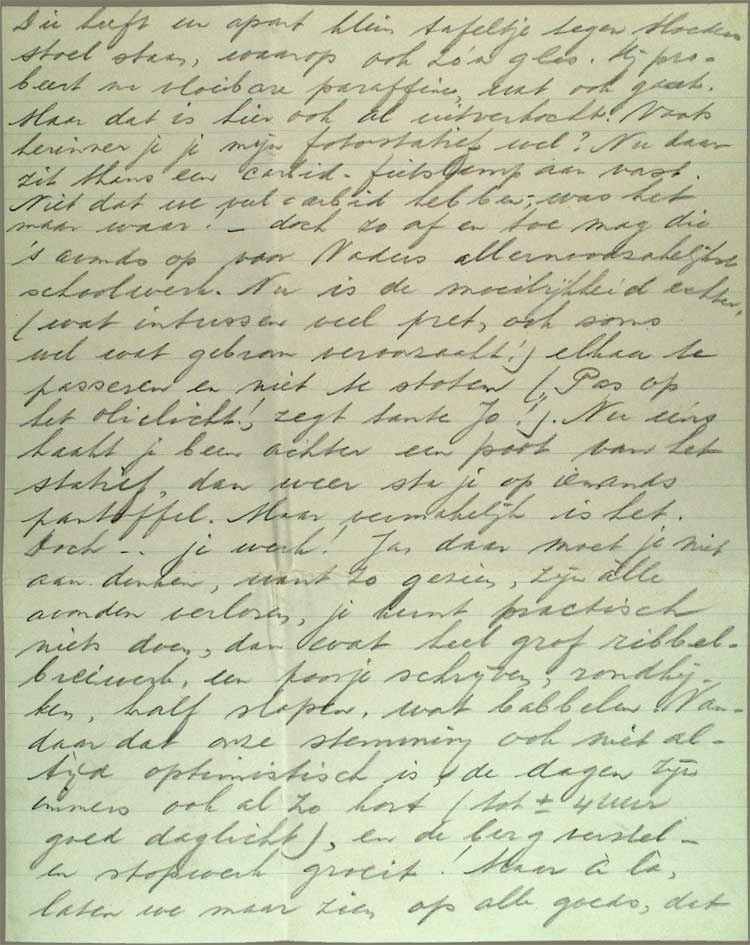 Die heeft een apart klein tafeltje tegen Moeders
stoel staan, waarop ook zo'n glas. Hij pro-
beert nu vloeibare paraffine, wat ook gaat.
Maar dat is hier ook al uitverkocht! Vaak
herinner je je mijn fotostatief wel? Nu daar
zit thans een carbid-fietslamp aan vast.
Niet dat we veel carbid hebben, was het
maar waar! – doch zo af en toe mag die
's avonds op voor Vaders allernoodzakelijkste
schoolwerk. Nu is de moeilijkheid echter,
(wat intussen veel pret, ook soms
wel wat gebrom veroorzaakt!) elkaar te
passeren en niet te stoten („Pas op
het olielicht!, zegt tante Jo!). Nu eens
haakt je been achter een poot van het
statief, dan weer sta je op iemands
pantoffel. Maar vermakelijk is het.
Doch -- je werk! Ja, daar moet je niet
aan denken, want zo gezien, zijn alle
avonden verloren, je kunt practisch
niets doen, dan wat heel grof ribbel-
breiwerk, een poosje schrijven, rondkij-
ken, half slapen, wat babbelen. Van-
daar dat onze stemming ook niet al-
tijd optimistisch is, de dagen zijn
immers ook al zo kort (tot ± 4 uur
goed daglicht), en de berg verstel-
en stopwerk groeit! Maar à là,
laten we maar zien op alle goeds, dat